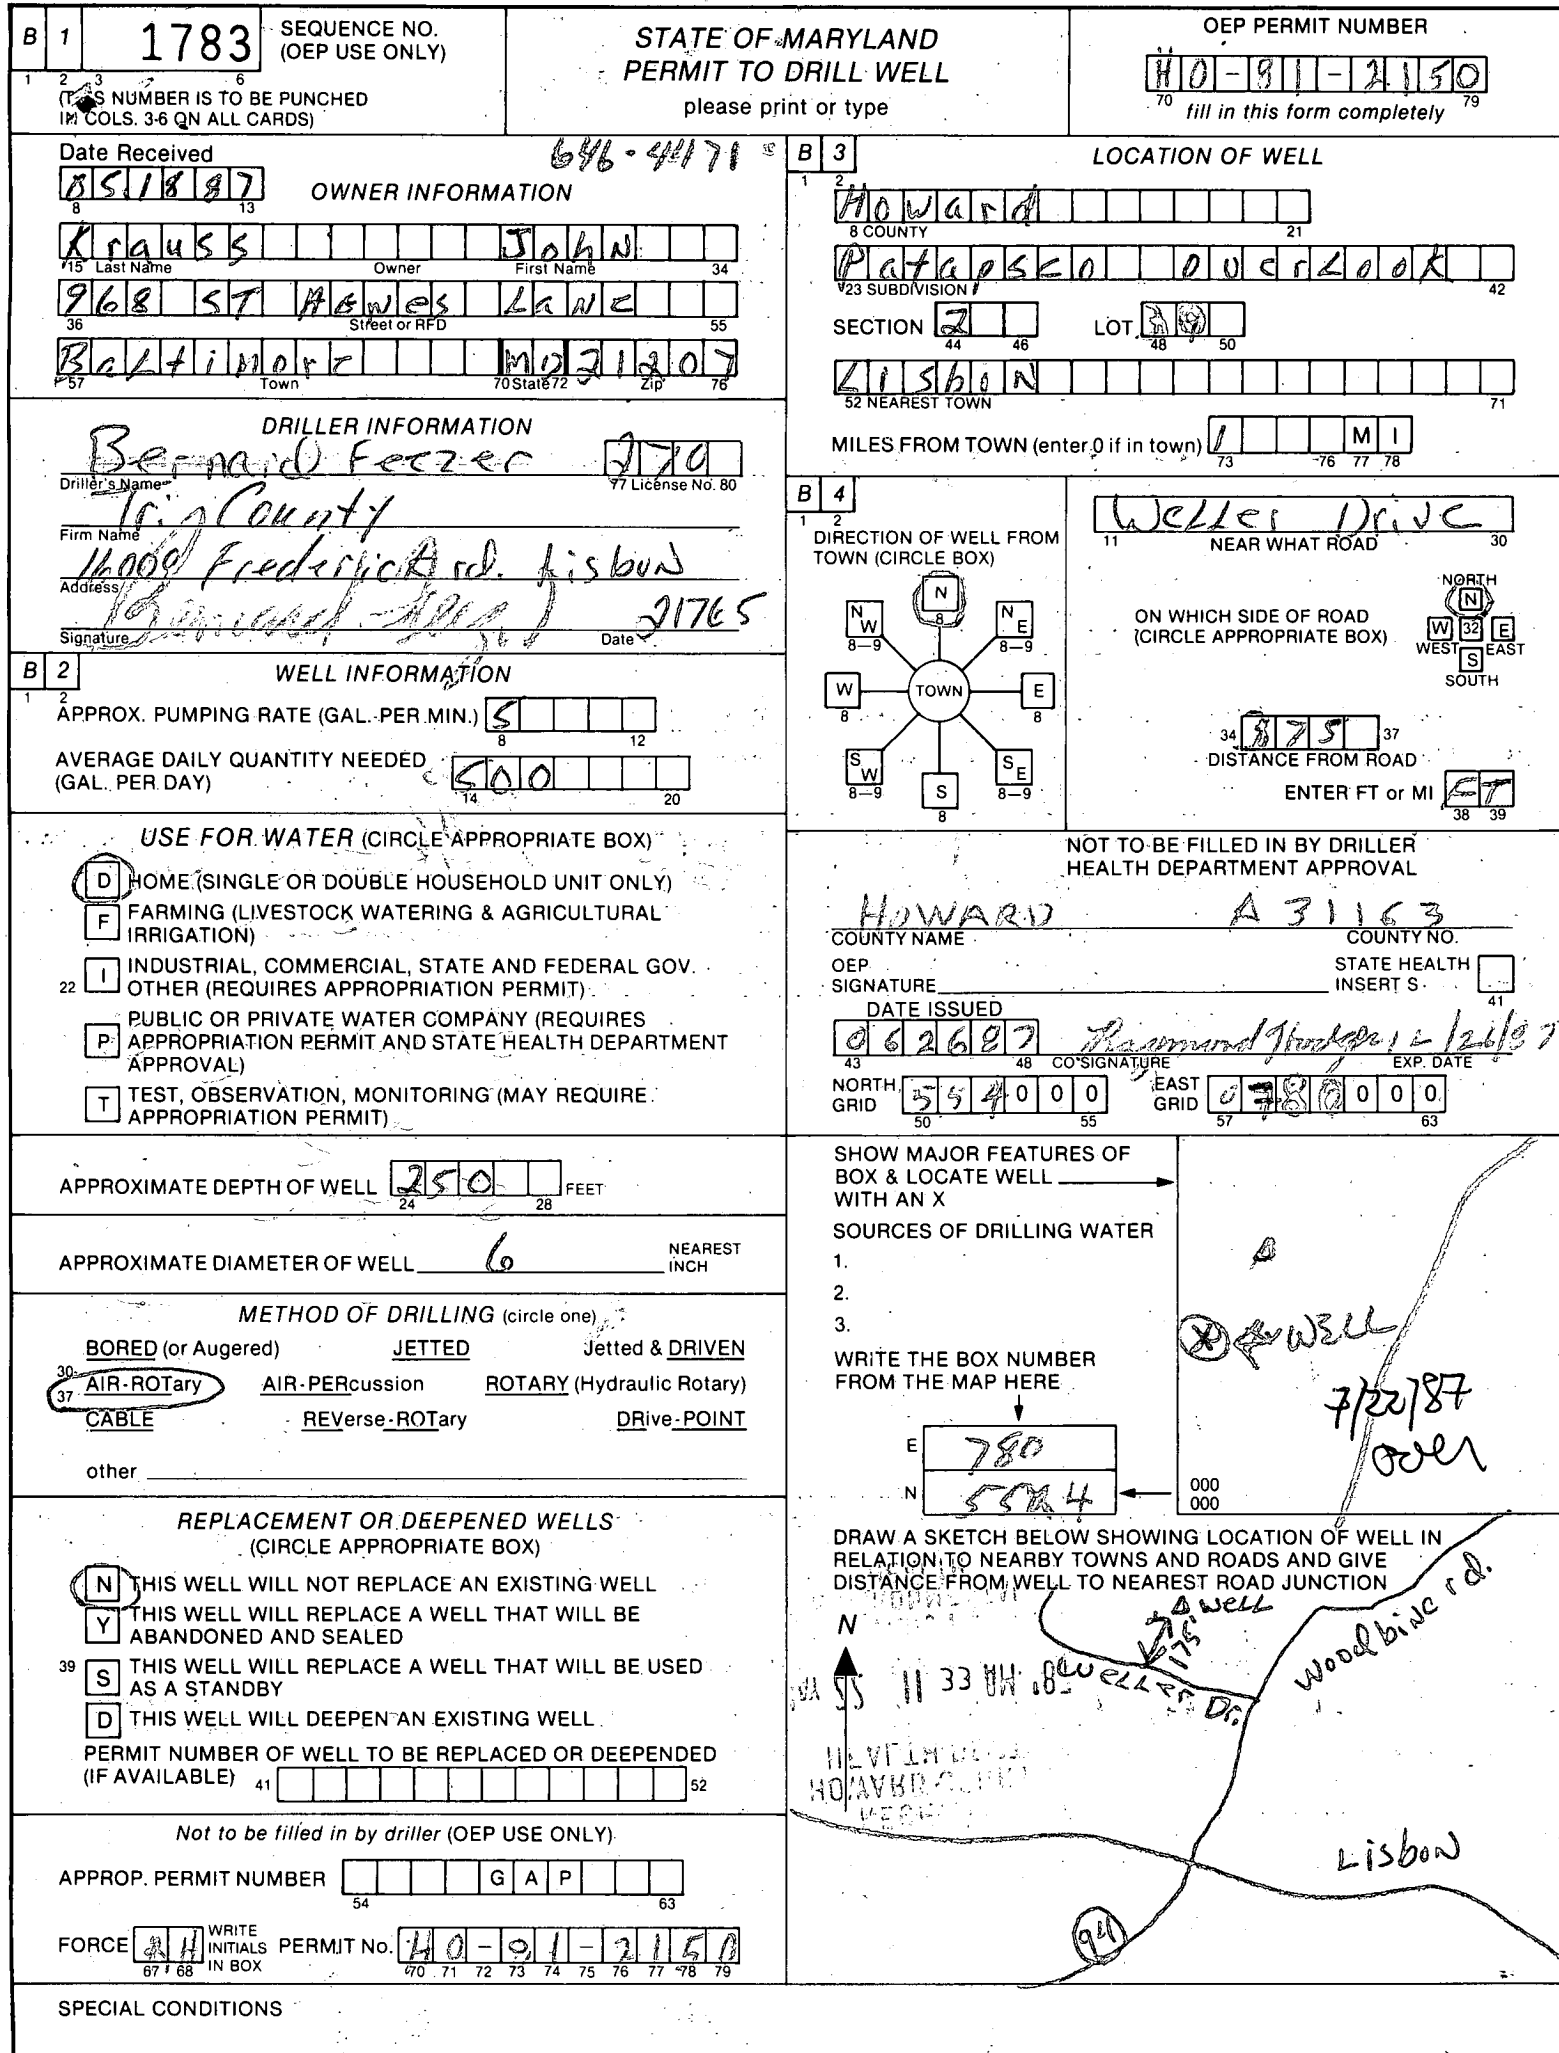 B 1 1783 SEQUENCE NO.
(OEP USE ONLY)
1 2 3 6
NUMBER IS TO BE PUNCHED
IN COLS. 3-6 ON ALL CARDS)
STATE OF MARYLAND
PERMIT TO DRILL WELL
please print or type
OEP PERMIT NUMBER
HO-81-2150
70 79
fill in this form completely
Date Received
051887
8 13
646-4471
OWNER INFORMATION
Krauss John
15 Last Name Owner First Name 34
968 ST Agnes Lane
36 Street or RFD 55
Baltimore MD 21207
57 Town 70 State 72 Zip 76
DRILLER INFORMATION
Bernard Feezer 270
Driller's Name 77 License No. 80
Tri County
Firm Name
16009 Frederick rd. Lisbon
Address
21765
Signature Date
B 2 WELL INFORMATION
1 2
APPROX. PUMPING RATE (GAL. PER MIN.) 5
8 12
AVERAGE DAILY QUANTITY NEEDED
(GAL. PER DAY) 500
14 20
USE FOR WATER (CIRCLE APPROPRIATE BOX)
D HOME (SINGLE OR DOUBLE HOUSEHOLD UNIT ONLY)
F FARMING (LIVESTOCK WATERING & AGRICULTURAL
IRRIGATION)
22 I INDUSTRIAL, COMMERCIAL, STATE AND FEDERAL GOV.
OTHER (REQUIRES APPROPRIATION PERMIT)
P PUBLIC OR PRIVATE WATER COMPANY (REQUIRES
APPROPRIATION PERMIT AND STATE HEALTH DEPARTMENT
APPROVAL)
T TEST, OBSERVATION, MONITORING (MAY REQUIRE
APPROPRIATION PERMIT)
APPROXIMATE DEPTH OF WELL 250 FEET
24 28
APPROXIMATE DIAMETER OF WELL 6 NEAREST
INCH
METHOD OF DRILLING (circle one)
BORED (or Augered) JETTED Jetted & DRIVEN
30-37 AIR-ROTary AIR-PERcussion ROTARY (Hydraulic Rotary)
CABLE REVerse-ROTary DRive-POINT
other
REPLACEMENT OR DEEPENED WELLS
(CIRCLE APPROPRIATE BOX)
N THIS WELL WILL NOT REPLACE AN EXISTING WELL
Y THIS WELL WILL REPLACE A WELL THAT WILL BE
ABANDONED AND SEALED
39 S THIS WELL WILL REPLACE A WELL THAT WILL BE USED
AS A STANDBY
D THIS WELL WILL DEEPEN AN EXISTING WELL
PERMIT NUMBER OF WELL TO BE REPLACED OR DEEPENDED
(IF AVAILABLE) 41 52
Not to be filled in by driller (OEP USE ONLY)
APPROP. PERMIT NUMBER G A P
54 63
FORCE WRITE
INITIALS
IN BOX
67 68
PERMIT No. HO-81-2150
70 71 72 73 74 75 76 77 78 79
SPECIAL CONDITIONS
B 3 LOCATION OF WELL
1 2
Howard
8 COUNTY 21
Patapsco Overlook
23 SUBDIVISION 42
SECTION 2 LOT
44 46 48 50
Lisbon
52 NEAREST TOWN 71
MILES FROM TOWN (enter 0 if in town) 1 MI
73 76 77 78
B 4
1 2
DIRECTION OF WELL FROM
TOWN (CIRCLE BOX)
N
8
NW
8-9
NE
8-9
W
8
TOWN
E
8
SW
8-9
S
8
SE
8-9
Weller Drive
11 NEAR WHAT ROAD 30
ON WHICH SIDE OF ROAD
(CIRCLE APPROPRIATE BOX)
NORTH
N
W 32 E
WEST EAST
S
SOUTH
34 875 37
DISTANCE FROM ROAD
ENTER FT or MI FT
38 39
NOT TO BE FILLED IN BY DRILLER
HEALTH DEPARTMENT APPROVAL
HOWARD A 31163
COUNTY NAME COUNTY NO.
OEP
SIGNATURE
STATE HEALTH
INSERT S
41
DATE ISSUED
062687 12/26/87
43 48 CO SIGNATURE EXP. DATE
NORTH
GRID 554000
50 55
EAST
GRID 0780000
57 63
SHOW MAJOR FEATURES OF
BOX & LOCATE WELL
WITH AN X
SOURCES OF DRILLING WATER
1.
2.
3.
WRITE THE BOX NUMBER
FROM THE MAP HERE
E 780
N 554
X WELL
7/22/87
over
000
000
DRAW A SKETCH BELOW SHOWING LOCATION OF WELL IN
RELATION TO NEARBY TOWNS AND ROADS AND GIVE
DISTANCE FROM WELL TO NEAREST ROAD JUNCTION
N
well
Weller Dr.
Woodbine rd.
Lisbon
94